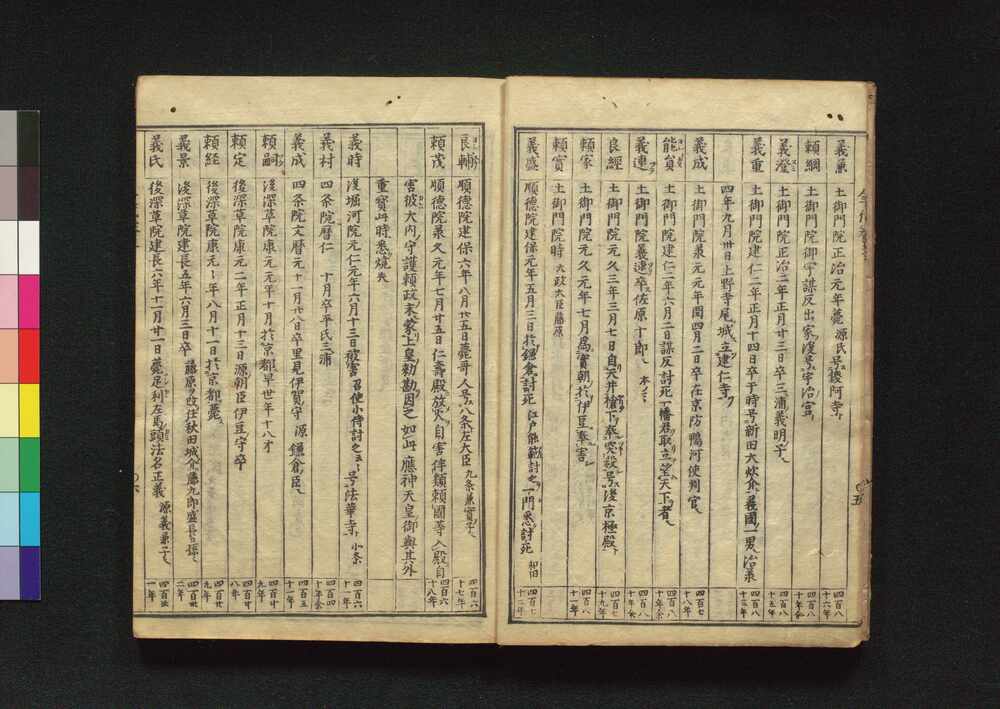 義兼 土御門院正治元年薨 源氏号鑁阿寺
四百八十六年
頼綱 土御門院御宇謀反出家後号宇治宮
四百八十年余
義澄 土御門院正治二年正月廿三日卒 三浦義明子
四百八十五年
義重 土御門院建仁二年正月十四日卒 于時号新田大炊介 義國一男 治承
四百八十三年
四年九月卅日上野寺尾城立建仁寺
義成 土御門院承元元年閏四月二日卒 在京防鴨河使判官
四百七十八年
能員 土御門院建仁三年六月二日謀反討死 一幡君取立望天下者
四百八十年余
義連 土御門院義連卒 佐原十郎
良經 土御門院元久三年三月七日自天井槍下奉突殺 号後京極殿
四百七十九年
頼家 土御門院元久元年七月為實朝於伊豆奉害
四百八十一年
頼實 土御門院時 太政大臣藤原
義盛 順德院建保元年五月三日於鎌倉討死 江戸能範討之 一門悉討死 和田
四百七十二年
良輔 順德院建保六年八月廿五日薨 哥人号八条左大臣 九条兼實子
四百六十七年
頼茂 順德院承久元年七月廿五日仁壽殿放火自害 伴類頼國等入殿自
四百六十八年
害 彼大内守護頼政末 蒙上皇勅勘因之如此 應神天皇御輿其外
重寳此時悉焼失
義時 後堀河院元仁元年六月十三日被害 召使小侍討之 号法華寺 小条
四百六十一年
義村 四条院暦仁 十月卒 平氏三浦
四百四十年余
義成 四条院文暦元十一月廿八日卒 里見伊賀守 源 鎌倉臣
四百五十一年
頼嗣 後深草院康元元年十月於京都早世 年十八才
四百廿九年
頼定 後深草院康元二年正月十三日 源朝臣伊豆守卒
四百廿八年
頼經 後深草院康元々年八月十一日於京都薨
四百廿九年
義景 後深草院建長五年六月三日卒 藤原 改任秋田城介 藤九郎盛長孫
四百卅二年
義氏 後深草院建長六年十一月廿一日薨 足利左馬頭法名正義 源義兼子
四百卅一年